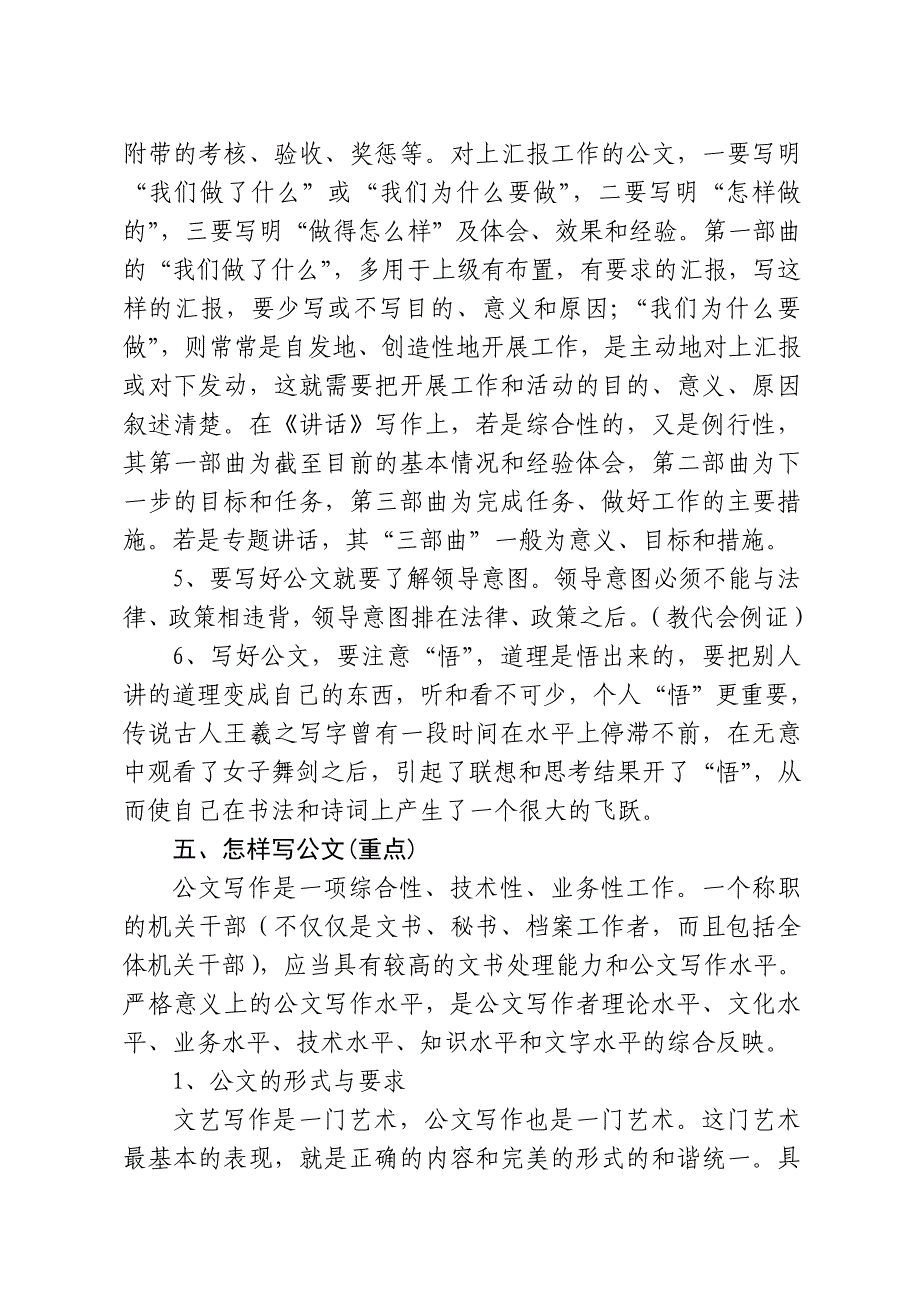 附带的考核、验收、奖惩等。对上汇报工作的公文，一要写明
“我们做了什么”或“我们为什么要做”，二要写明“怎样做
的”，三要写明“做得怎么样”及体会、效果和经验。第一部曲
的“我们做了什么”，多用于上级有布置，有要求的汇报，写这
样的汇报，要少写或不写目的、意义和原因；“我们为什么要
做”，则常常是自发地、创造性地开展工作，是主动地对上汇报
或对下发动，这就需要把开展工作和活动的目的、意义、原因
叙述清楚。在《讲话》写作上，若是综合性的，又是例行性，
其第一部曲为截至目前的基本情况和经验体会，第二部曲为下
一步的目标和任务，第三部曲为完成任务、做好工作的主要措
施。若是专题讲话，其“三部曲”一般为意义、目标和措施。
5、要写好公文就要了解领导意图。领导意图必须不能与法
律、政策相违背，领导意图排在法律、政策之后。（教代会例证）
6、写好公文，要注意“悟”，道理是悟出来的，要把别人
讲的道理变成自己的东西，听和看不可少，个人“悟”更重要，
传说古人王羲之写字曾有一段时间在水平上停滞不前，在无意
中观看了女子舞剑之后，引起了联想和思考结果开了“悟”，从
而使自己在书法和诗词上产生了一个很大的飞跃。
五、怎样写公文(重点)
公文写作是一项综合性、技术性、业务性工作。一个称职
的机关干部（不仅仅是文书、秘书、档案工作者，而且包括全
体机关干部），应当具有较高的文书处理能力和公文写作水平。
严格意义上的公文写作水平，是公文写作者理论水平、文化水
平、业务水平、技术水平、知识水平和文字水平的综合反映。
1、公文的形式与要求
文艺写作是一门艺术，公文写作也是一门艺术。这门艺术
最基本的表现，就是正确的内容和完美的形式的和谐统一。具